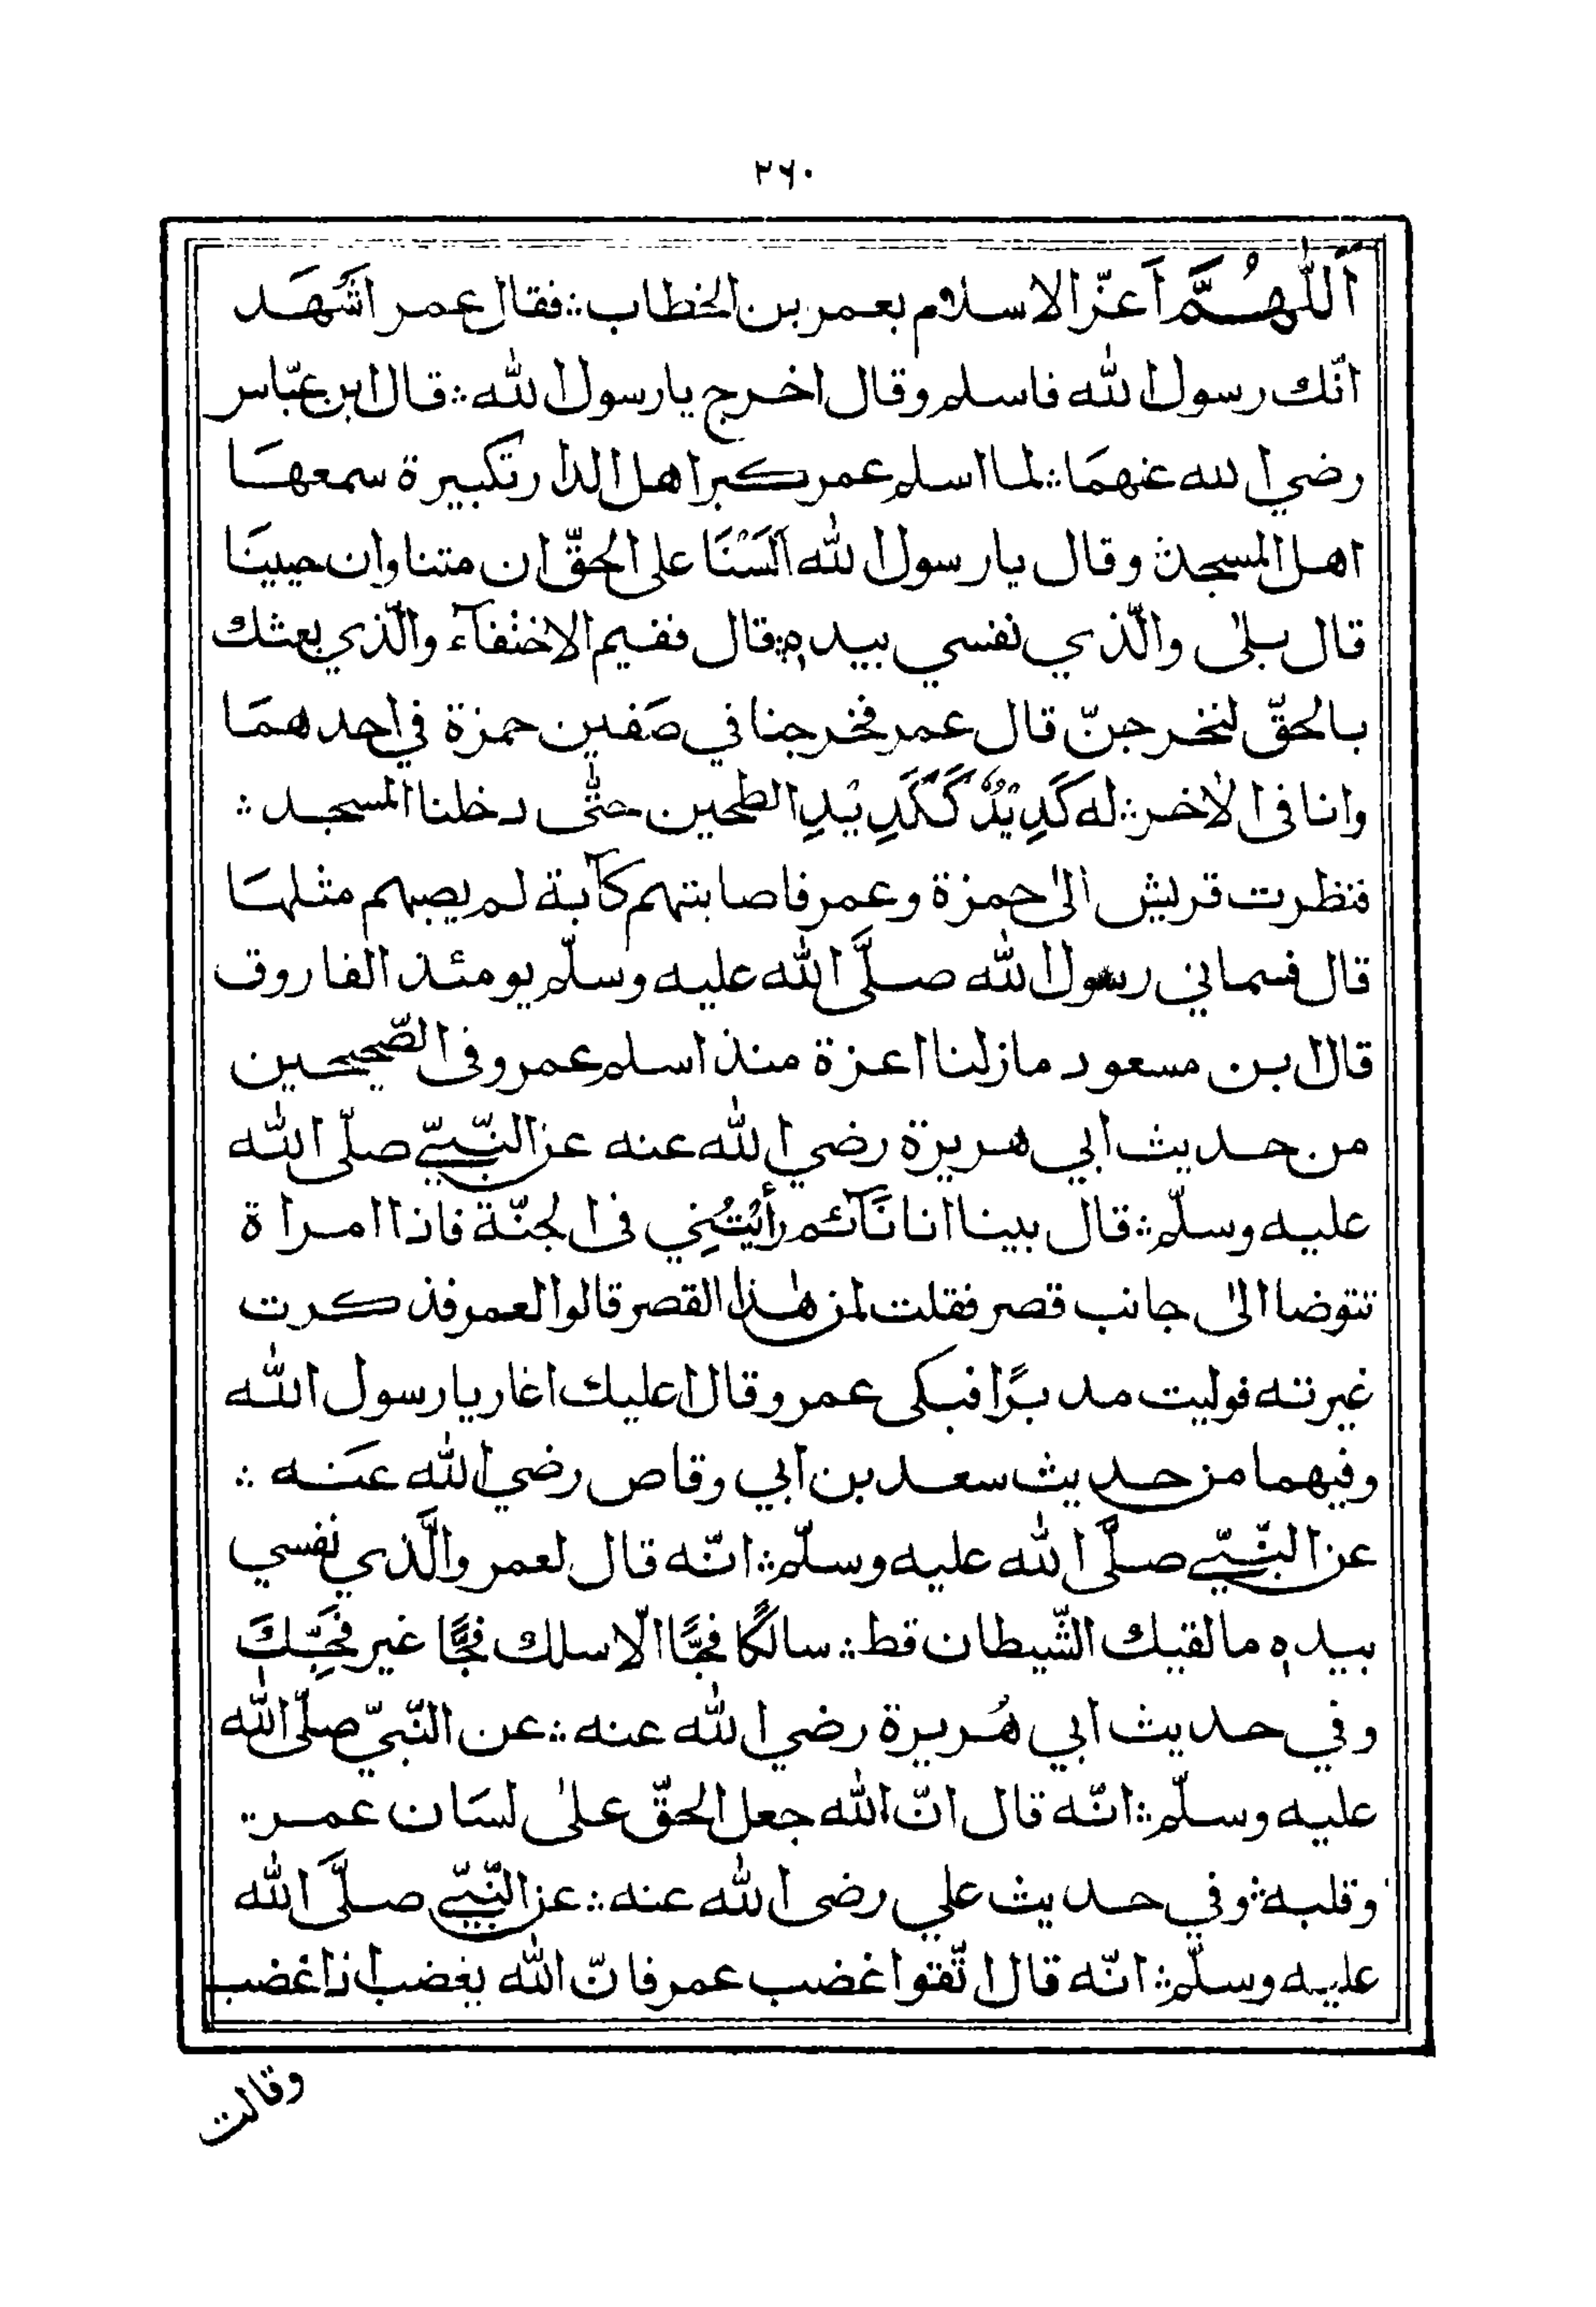 ٢٦٠
اَللّٰهُمَّ اَعزّ الاسلام بعمر بن الخطاب ∴ فقال عمر اشَهَد
انّك رسول الله فاسلم وقال اخرج يا رسول الله ∴ قال ابن عبّاس
رضي الله عنهمَا ∴ لما اسلم عمر كبر اهل الدار تكبيرة سمعهَا
اهل المسجد ∴ وقال يا رسول الله اَلَسْنَا على الحقّ ان متنا وان حيينَا
قال بلىٰ والّذي نفسي بيده ∴ قال ففيم الاختفآء والّذي بعثك
بالحقّ لنخرجنّ قال عمر فخرجنا في صَفين حمزة في احدهمَا
وانا في الاٰخر ∴ له كَدِيْدٌ كَكَدِيْدِ الطحين حتّى دخلنا المسجد ∴
فنظرت قريش الىٰ حمزة وعمر فاصابتهم كآبة لم يصبهم مثلهَا
قال فسماني رسول الله صلَّى الله عليه وسلّم يومئذ الفاروق
قال ابن مسعود مازلنا اعزة منذ اسلم عمر وفي الصّحيحين
من حديث ابي هريرة رضي الله عنه عن النّبيّ صلّى الله
عليه وسلّم ∴ قال بينا انا نَآئم رأيْتُنِي في الجنّة فاذا امراة
تتوضا الىٰ جانب قصر فقلت لمن هٰذا القصر قالوا لعمر فذكرت
غيرته فوليت مدبرًا فبكى عمر وقال اعليك اغار يا رسول الله
وفيهما من حديث سعد بن ابي وقاص رضي الله عنَه ∴
عن النّبيّ صلَّى الله عليه وسلّم ∴ انّه قال لعمر والَّذي نفسي
بيده ما لقيك الشّيطان قط ∴ سالكًا فجًّا الّا سلك فجًّا غير فَجِّكَ
وفي حديث ابي هُريرة رضي الله عنه ∴ عن النّبيّ صلّى الله
عليه وسلّم ∴ انّه قال انّ الله جعل الحقّ علىٰ لسَان عمر
وقلبه ∴ وفي حديث علي رضي الله عنه ∴ عن النّبيّ صلَّى الله
عليه وسلّم ∴ انّه قال اتّقوا غضب عمر فانّ الله يغضب اذا غضب
وقالت